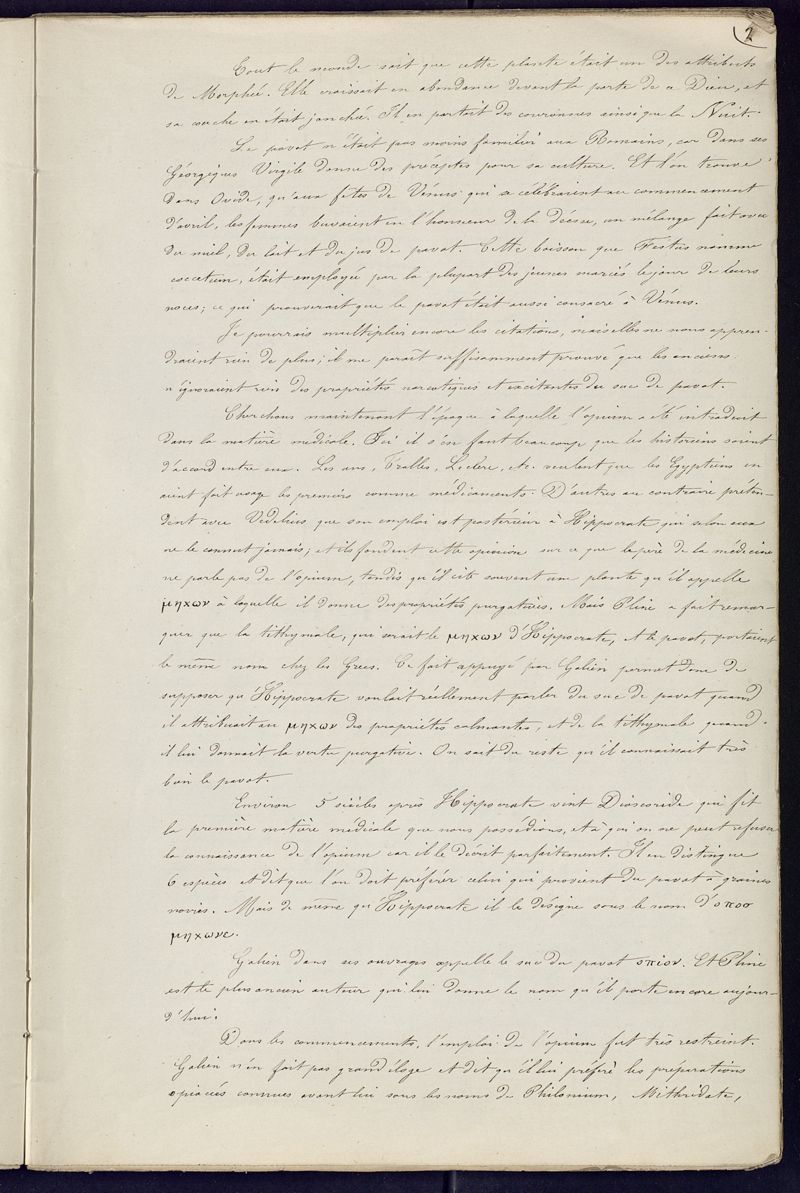 2
Tout le monde sait que cette plante était un des attributs
de Morphée. Elle croissait en abondance devant la porte de ce Dieu, et
sa couche en était jonchée. Il en portait des couronnes ainsi que la Nuit.
Le pavot n'était pas moins familier aux Romains, car dans ses
Géorgiques Virgile donne des préceptes pour sa culture. Et l'on trouve
dans Ovide, qu'aux fêtes de Vénus qui se célébraient au commencement
d'avril, les femmes buvaient en l'honneur de la déesse, un mélange fait avec
du miel, du lait et du jus de pavot. Cette boisson que Festus nomme
cocetum, était employée par la plupart des jeunes mariés le jour de leurs
noces; ce qui prouverait que le pavot était aussi consacré à Vénus.
Je pourrais multiplier encore les citations, mais elles ne nous appren-
draient rien de plus; il me paraît suffisamment prouvé que les anciens
n'ignoraient rien des propriétés narcotiques et excitantes du suc de pavot.
Cherchons maintenant l'époque à laquelle l'opium a été introduit
dans la matière médicale. Ici il s'en faut beaucoup que les historiens soient
d'accord entre eux. Les uns, Tralles, Leclerc, etc. veulent que les Egyptiens en
aient fait usage les premiers comme médicaments. D'autres au contraire préten-
dent avec Vedelius que son emploi est postérieur à Hippocrate qui selon eux
ne le connut jamais; et ils fondent cette opinion sur ce que le père de la médecine
ne parle pas de l'opium, tandis qu'il cite souvent une plante qu'il appelle
μηχων à laquelle il donne des propriétés purgatives. Mais Pline a fait remar-
quer que la tithymale, qui serait le μηχων d'Hippocrate, et le pavot, portaient
le même nom chez les Grecs. Ce fait appuyé par Galien permet donc de
supposer qu'Hippocrate voulait réellement parler du suc de pavot quand
il attribuait au μηχων des propriétés calmantes, et de la tithymale quand
il lui donnait la vertu purgative. On sait du reste qu'il connaissait très
bien le pavot.
Environ 5 siècles après Hippocrate vint Dioscoride qui fit
la première matière médicale que nous possédions, et à qui on ne peut refuser
la connaissance de l'opium car il le décrit parfaitement. Il en distingue
6 espèces et dit que l'on doit préférer celui qui provient du pavot à graines
noires. Mais de même qu'Hippocrate il le désigne sous le nom d'οποσ
μηχωνε.
Galien dans ses ouvrages appelle le suc du pavot οπιον. Et Pline
est le plus ancien auteur qui lui donne le nom qu'il porte encore aujour-
d'hui.
Dans les commencements, l'emploi de l'opium fut très restreint.
Galien n'en fait pas grand éloge et dit qu'il lui préfère les préparations
opiacées connues avant lui sous les noms de Philonium, Mithridate,